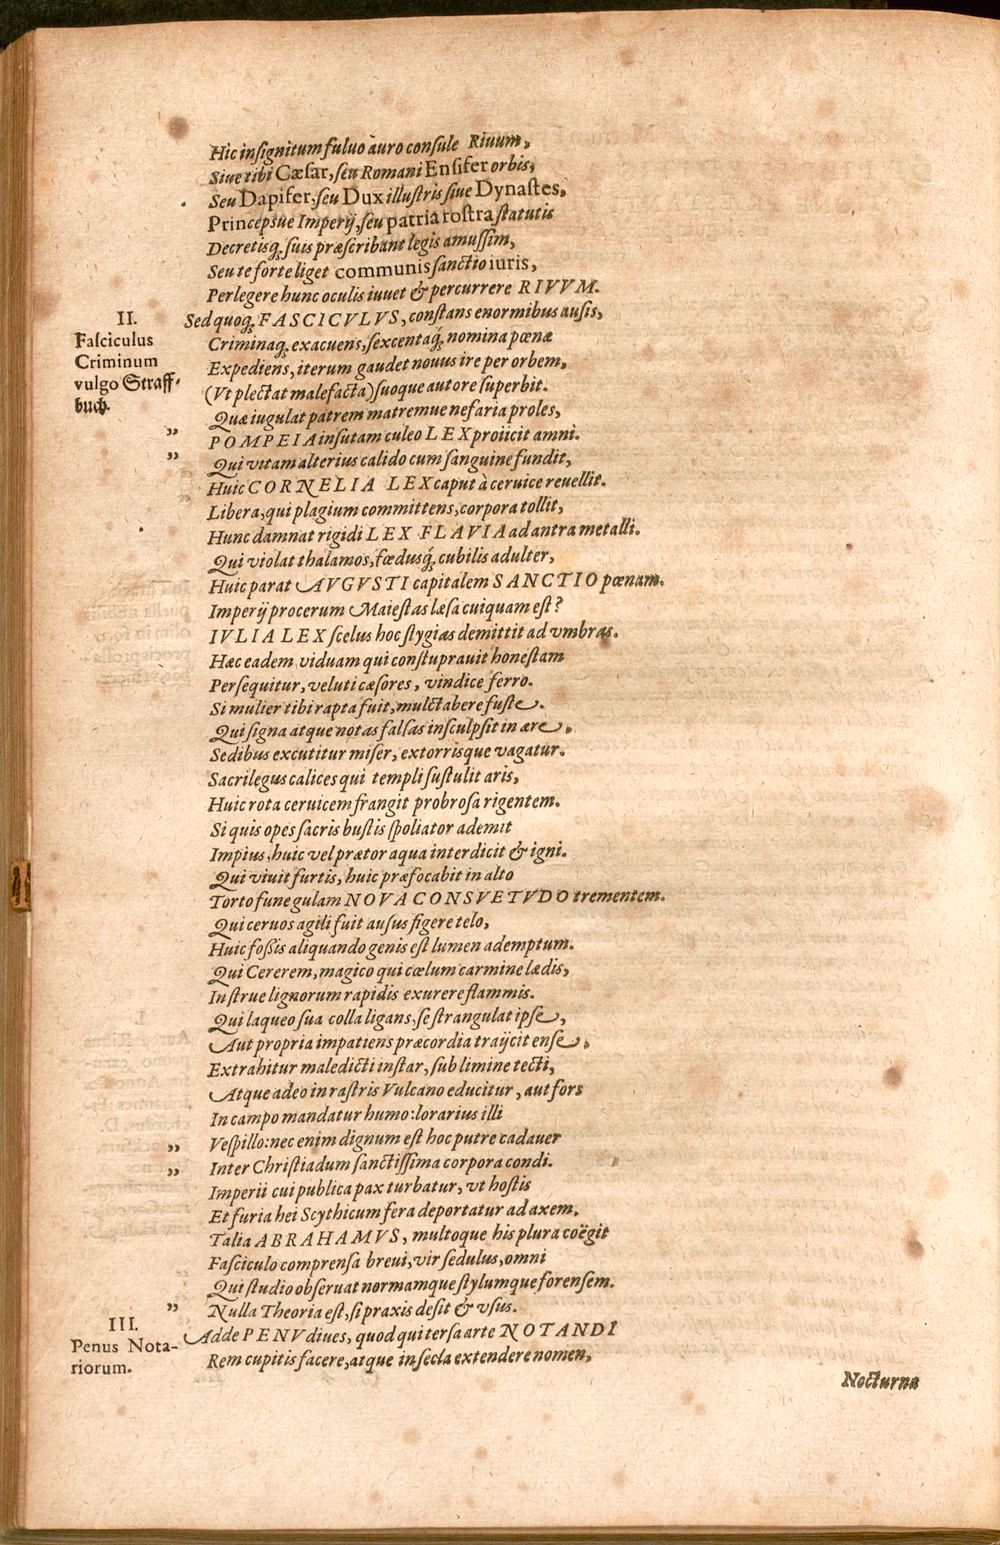 Hic insignitum fuluo àuro consule Riuum,
Siue tibi Cæsar, seu Romani Ensifer orbis,
Seu Dapifer, seu Dux illustris siue Dynastes,
Princepsue Imperij, seu patria rostra statutis
Decretisq́; suis præscribant legis amussim,
Seu te forte liget communis sanctio iuris,
Perlegere hunc oculis iuuet & percurrere RIVVM.
II.
Fasciculus
Criminum
vulgo Straff-
buch.
Sed quoq́; FASCICVLVS, constans enormibus ausis,
Criminaq́; exacuens, sexcentaq́; nomina pœnæ
Expediens, iterum gaudet nouus ire per orbem,
(Vt plectat malefacta) suoque autore superbit.
Quæ iugulat patrem matremue nefaria proles,
„ POMPEIA insutam culeo LEX proiicit amni.
„ Qui vitam alterius calido cum sanguine fundit,
Huic CORNELIA LEX caput à ceruice reuellit.
Libera, qui plagium committens, corpora tollit,
Hunc damnat rigidi LEX FLAVIA ad antra metalli.
Qui violat thalamos, fœdusq́; cubilis adulter,
Huic parat AVGVSTI capitalem SANCTIO pœnam.
Imperij procerum Maiestas læsa cuiquam est?
IVLIA LEX scelus hoc stygias demittit ad vmbras.
Hæc eadem viduam qui constuprauit honestam
Persequitur, veluti cæsores, vindice ferro.
Si mulier tibi rapta fuit, mulctabere fuste.
Qui signa atque notas falsas insculpsit in ære,
Sedibus excutitur miser, extorrisque vagatur.
Sacrilegus calices qui templi sustulit aris,
Huic rota ceruicem frangit probrosa rigentem.
Si quis opes sacris bustis spoliator ademit
Impius, huic vel prætor aqua interdicit & igni.
Qui viuit furtis, huic præfocabit in alto
Torto fune gulam NOVA CONSVETVDO trementem.
Qui ceruos agili fuit ausus figere telo,
Huic fossis aliquando genis est lumen ademptum.
Qui Cererem, magico qui cœlum carmine lædis,
In strue lignorum rapidis exurere flammis.
Qui laqueo sua colla ligans, se strangulat ipse,
Aut propria impatiens præcordia traijcit ense,
Extrahitur maledicti instar, sub limine tecti,
Atque adeo in rastris Vulcano educitur, aut fors
In campo mandatur humo: lorarius illi
„ Vespillo: nec enim dignum est hoc putre cadauer
„ Inter Christiadum sanctissima corpora condi.
Imperii cui publica pax turbatur, vt hostis
Et furia hei Scythicum fera deportatur ad axem.
Talia ABRAHAMVS, multoque his plura coëgit
Fasciculo comprensa breui, vir sedulus, omni
Qui studio obseruat normamque stylumque forensem.
„ Nulla Theoria est, si praxis desit & vsus.
III.
Penus Nota-
riorum.
Adde PENV diues, quod qui tersa arte NOTANDI
Rem cupitis facere, atque in secla extendere nomen,
Nocturna